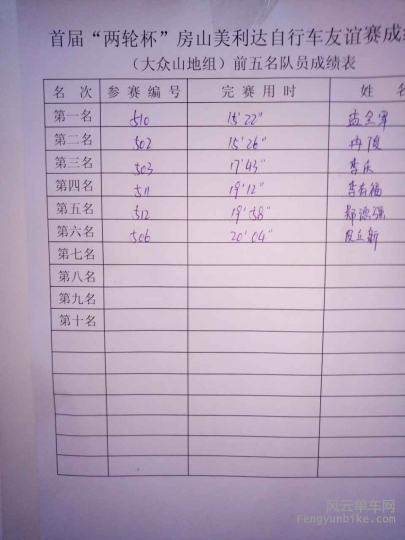 首届“两轮杯”房山美利达自行车友谊赛成
（大众山地组）前五名队员成绩表
名 次 参 赛 编 号 完 赛 用 时 姓 名
第一名 510 15'22"
第二名 502 15'26" 冉顶
第三名 503 17'43" 李庆
第四名 511 19'12" 李有福
第五名 512 19'58" 郑德强
第六名 506 20'04"
第七名
第八名
第九名
第十名
风云单车网
Fengyunbike.com